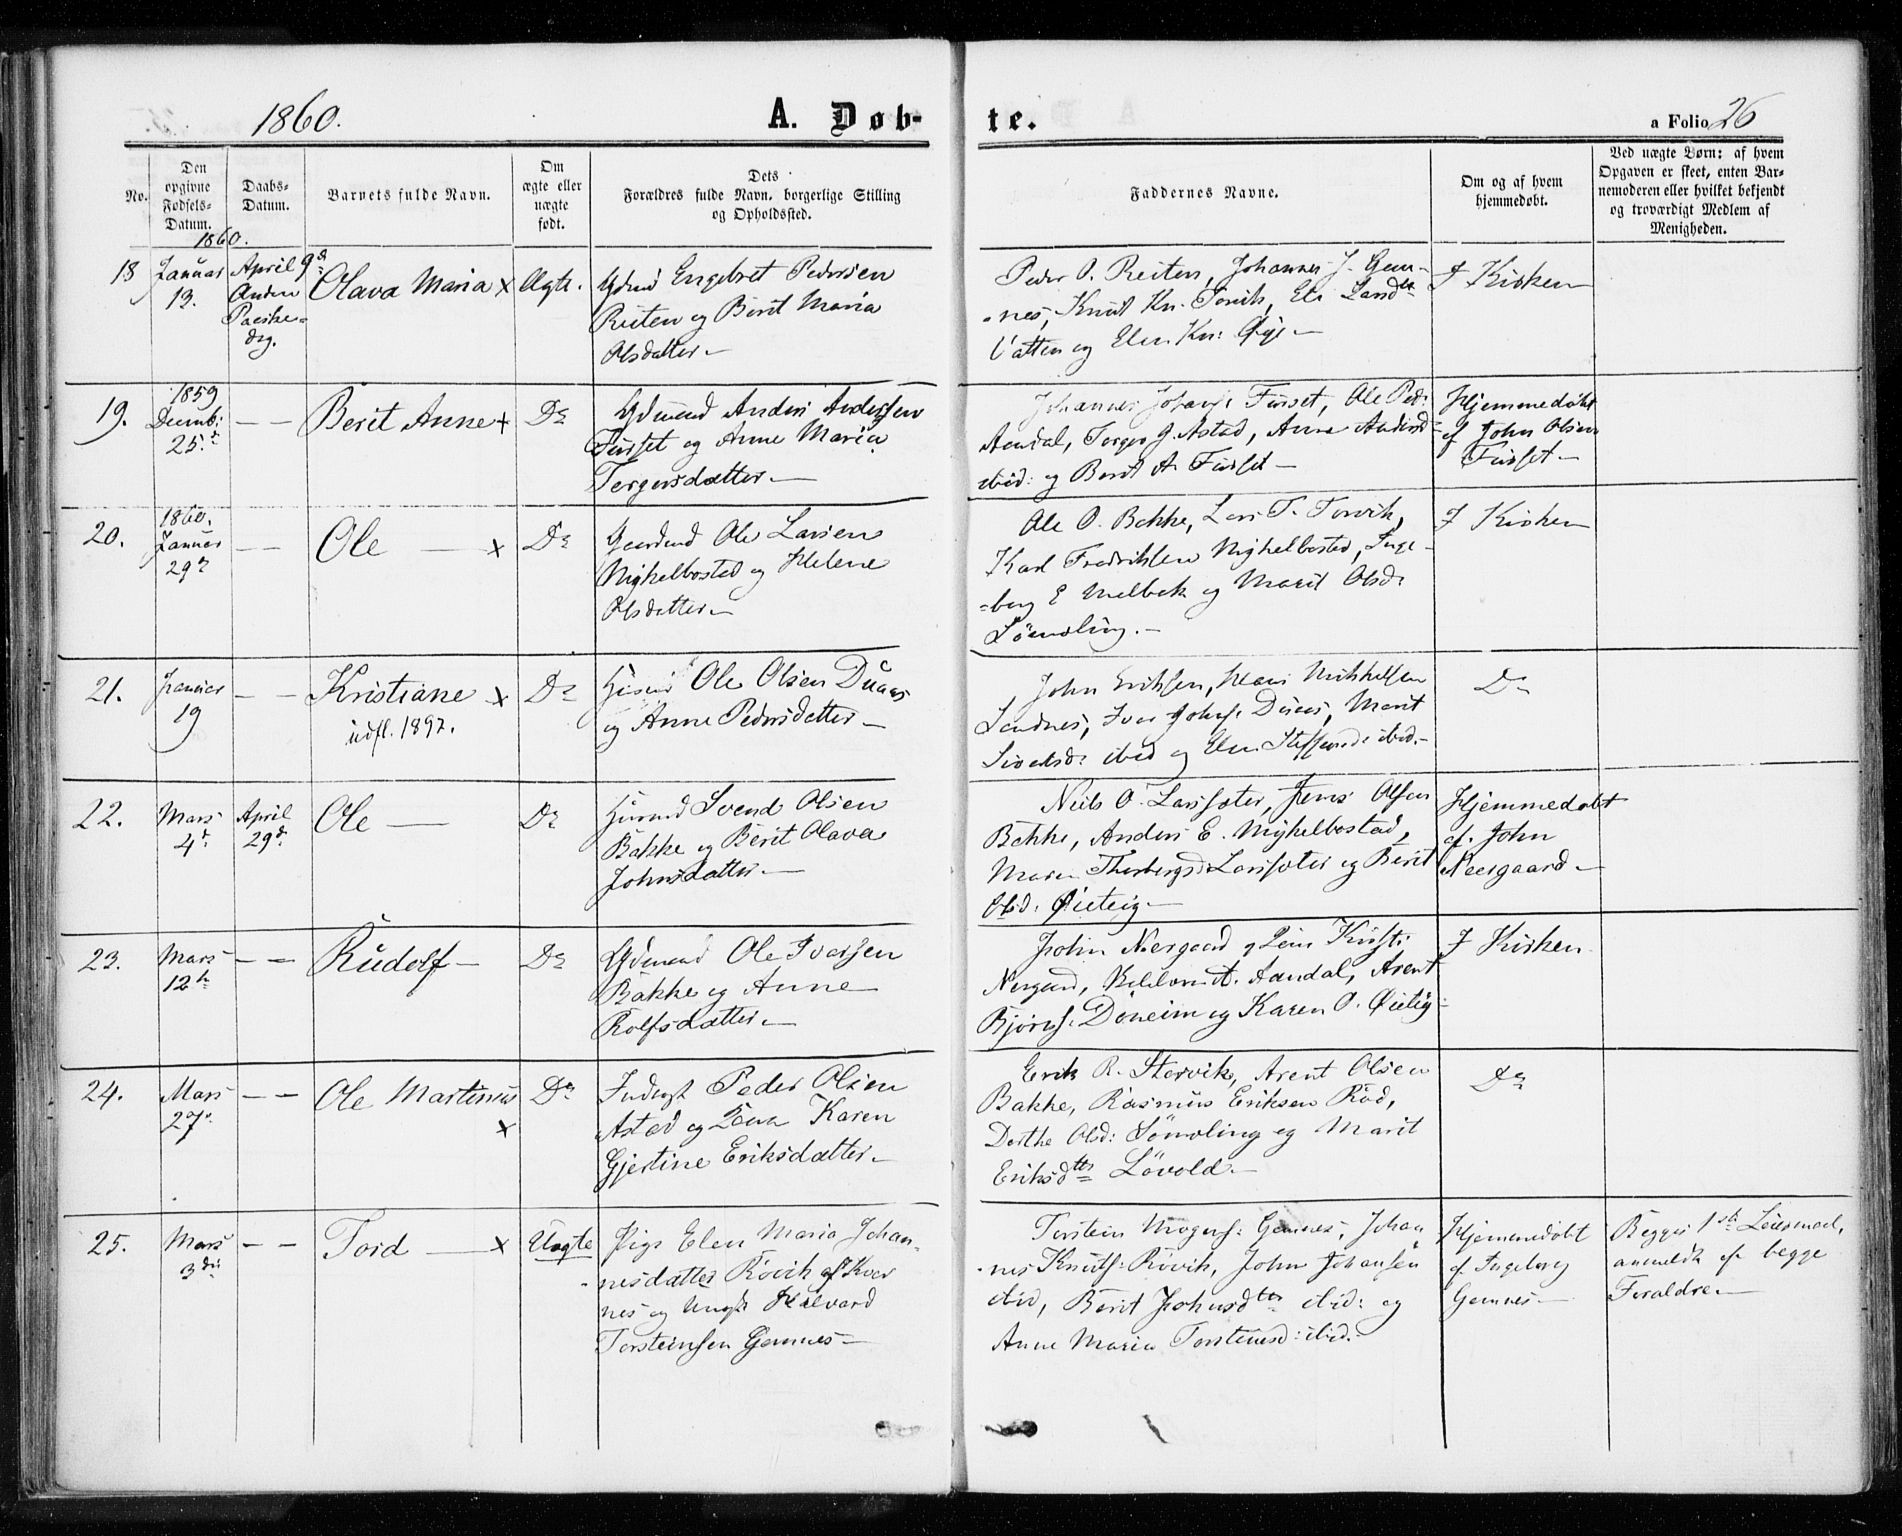 1860.
A. Døb-
te.
a Folio 26
No.
Den opgivne Fødsels-Datum.
Daabs-Datum.
Barnets fulde Navn.
Om ægte eller uægte født.
Dets Forældres fulde Navn, borgerlige Stilling og Opholdssted.
Faddernes Navne.
Om og af hvem hjemmedøbt.
Ved uægte Børn: af hvem Opgaven er skeet, enten Barnemoderen eller hvilket bekjendt og troværdigt Medlem af Menigheden.
1860.
18
Januar
13.
April 9d
Anden
Paaske=
dag.
Olava Maria x
Ægte.
Engebret Pedersen
Reiten og Berit Maria
Olsdatter—
Peder O. Reiten, Johannes J. Gem-
-nes, Knut Kn. Torvik, Eli Larsdtr
Vatten og Elen Kn: Øije—
I Kirken
19.
1859
Decmb:
25.d
— —
Berit Anne x
Do
Gdmand Anders Anderssen
Furset og Anne Maria
Tergersdatter—
Johannes Johans: Furset, Ole Ped:
Aandal, Torger J. Astad, Anne Andersd:
ibid: og Berit A. Furset—
Hjemmedøbt
af John Olsen
Furset—
20.
1860.
Januar
29d
— —
Ole — x
Do
Gaardmd Ole Larsen
Myhelbostad og Helene
Olsdatter—
Ole O. Bakke, Lars T. Torvik,
Karl Fredriksen Myhelbostad, Inge-
-borg E Melbek og Marit Olsd:
Sömdling.—
I Kirken
21.
Januar
19
— —
Kristiane x
udfl. 1892.
Do
Husmd Ole Olsen Duaas
og Anne Pedersdatter—
John Eriksen, Hans Mikkelsen
Sandnes, Iver Johns: Duaas, Marit
Sivertsd: ibid og Elen Steffensd: ibid.—
Do
22.
Mars
4d.
April
29d.
Ole —
Do
Husmd Svend Olsen
Bakke og Berit Olava
Johnsdatter—
Niels O. Larssæter, Jens Olsen
Bakke, Anders E. Myhelbostad,
Maren Thorbergsd: Larssæter og Berit
Olsd: Øieteig—
Hjemmedøbt
af John
Neergaard—
23.
Mars
12te
— —
Rudolf —
Do
Gdmand Ole Iverssen
Bakke og Anne
Rolfsdatter—
John Neergaard
Aandal, Arent
Bjørns: Döneim og Karen O. Øieteig
I Kirken
24.
Mars
27d.
— —
Ole Martinus
x
Do
Inderst Peder Olsen
Astad og Karen
Gjertine Eriksdatter—
Erik R. Storvik, Arent Olsen
Bakke, Rasmus Eriksen Röd,
Dorthe Olsd: Sömdling og Marit
Eriksdtter Lövold—
Do
25.
Mars
3die
— —
Tord — x
Uægte
Pige Elen Maria Johan-
-nesdatter Rövik af Kver
nes og Ungk Halvard
Torsteinsen Gemnes—
Torstein Mogens: Gemnes, Johan
-nes Knuts: Rövik, John Johansen
ibid, Berit Johnsdtter ibid: og
Anne Maria Torsteinsd: ibid.
Hjemmedøbt
af Ingeborg
Gemnes—
Begges 1ste Leiermaal,
anmeldt af begge
Forældre—